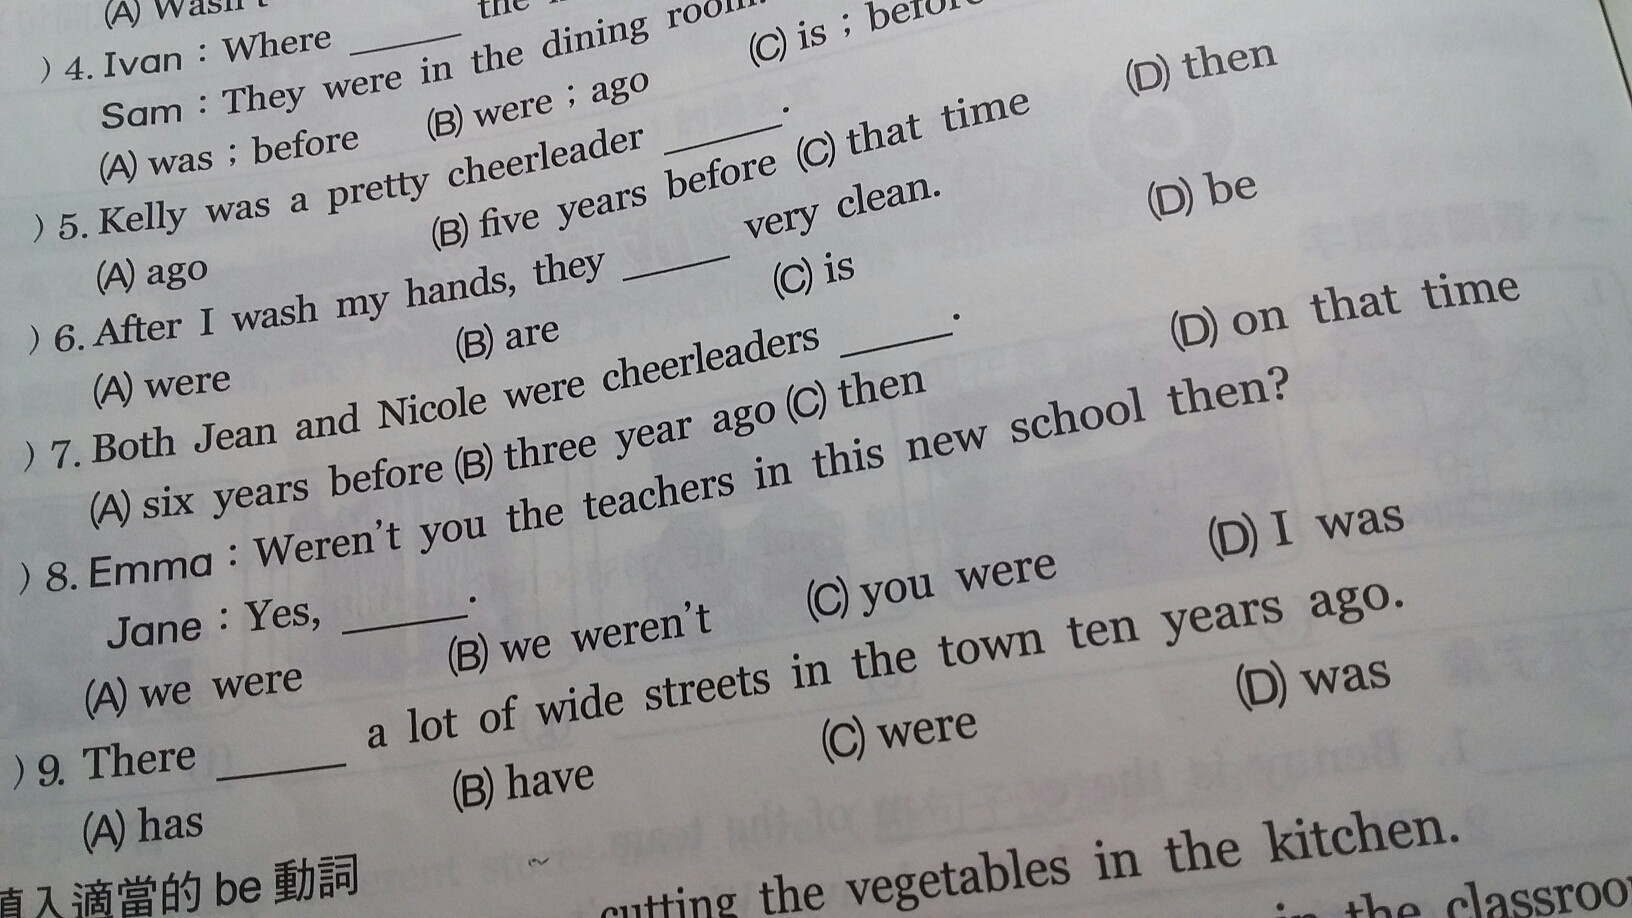 (A) Wasn't
the
) 4. Ivan : Where ______
Sam : They were in the dining room.
(A) was ; before (B) were ; ago (C) is ; before (D) then
) 5. Kelly was a pretty cheerleader ______.
(A) ago (B) five years before (C) that time
) 6. After I wash my hands, they ______ very clean.
(A) were (B) are (C) is (D) be
) 7. Both Jean and Nicole were cheerleaders ______.
(A) six years before (B) three year ago (C) then (D) on that time
) 8. Emma : Weren't you the teachers in this new school then?
Jane : Yes, ______.
(A) we were (B) we weren't (C) you were (D) I was
) 9. There ______ a lot of wide streets in the town ten years ago.
(A) has (B) have (C) were (D) was
填入適當的 be 動詞
cutting the vegetables in the kitchen.
in the classroo